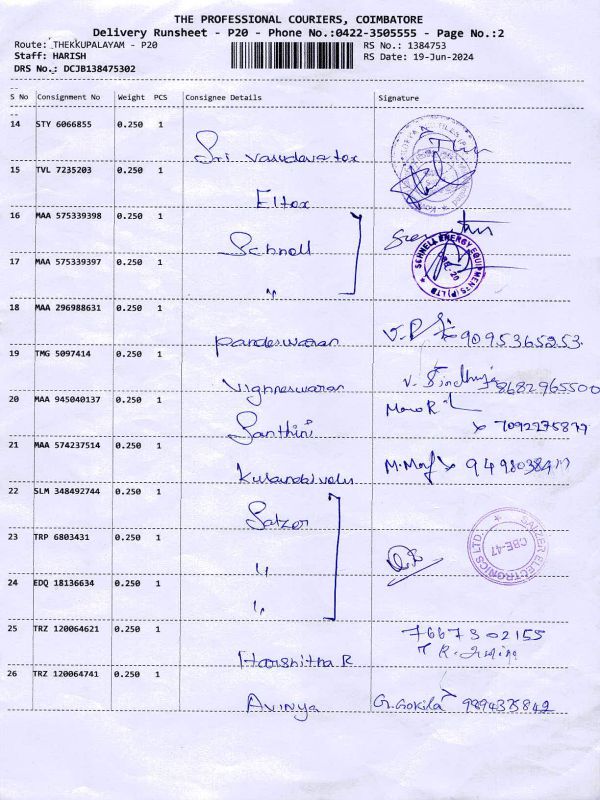 THE PROFESSIONAL COURIERS, COIMBATORE
Delivery Runsheet - P20 - Phone No.:0422-3505555 - Page No.:2
Route: THEKKUPALAYAM - P20
RS No.: 1384753
Staff: HARISH
RS Date: 19-Jun-2024
DRS No.: DCJB138475302
S No Consignment No Weight PCS Consignee Details Signature
14 STY 6066855 0.250 1
Sri Vasudava tex
15 TVL 7235203 0.250 1
Eltex
16 MAA 575339398 0.250 1
Schnell
SCHNELL ENERGY EQUIPMENTS (P) LTD
17 MAA 575339397 0.250 1
"
18 MAA 296988631 0.250 1
Pandeswaran 9095365253
19 TMG 5097414 0.250 1
Vighneswaran V. Sindhuja 8682965500
20 MAA 945040137 0.250 1
Santhini
21 MAA 574237514 0.250 1
22 SLM 348492744 0.250 1
Salzer
SALZER ELECTRONICS LTD.
CBE-47
23 TRP 6803431 0.250 1
"
24 EDQ 18136634 0.250 1
"
25 TRZ 120064621 0.250 1
7667302155
Harshitha R
26 TRZ 120064741 0.250 1
Avinya G. Gokila 9894375842